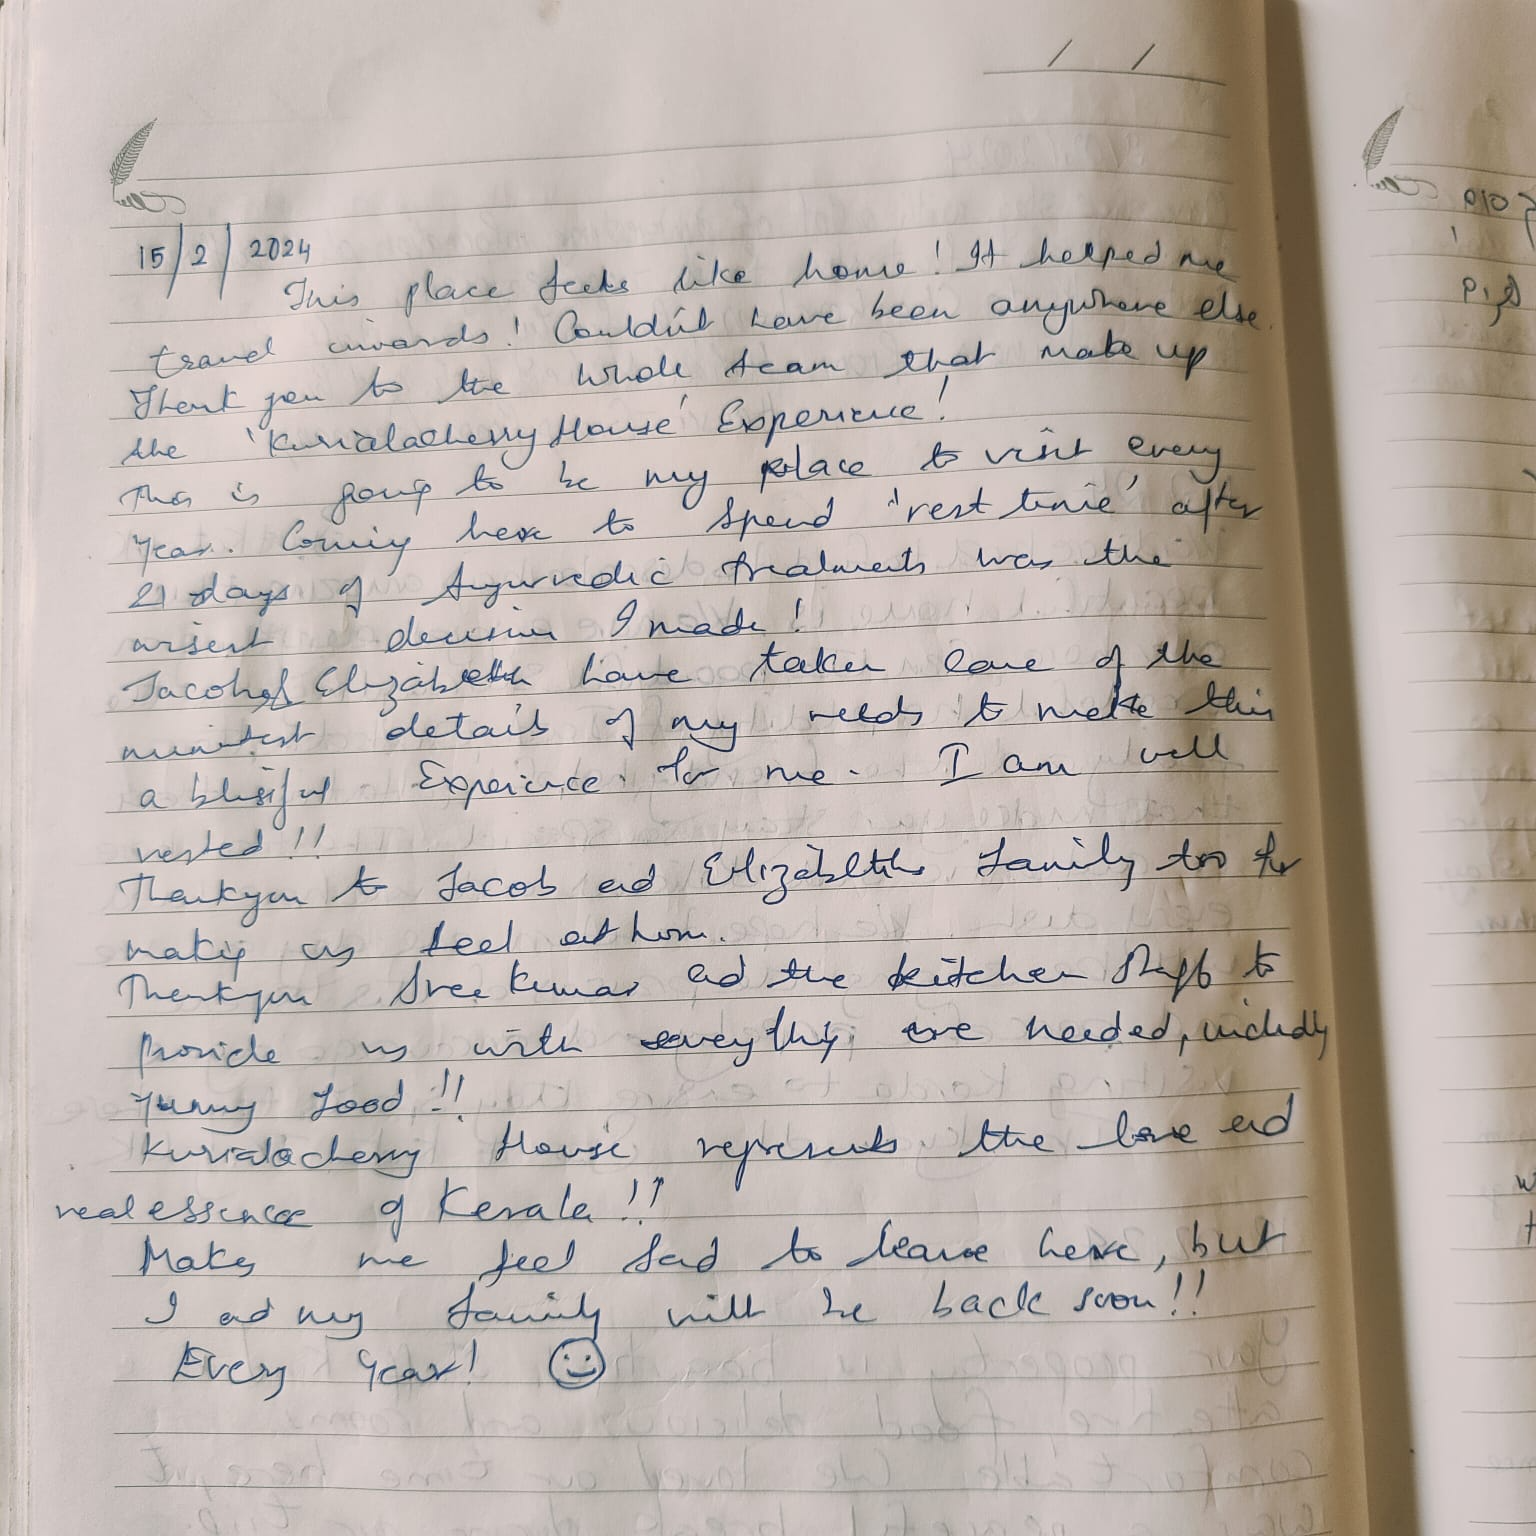 15/2/2024
This place feels like home! It helped me
travel inwards! Couldn't have been anywhere else.
Thank you to the whole team that make up
the 'Kurialacherry House' Experience!
This is going to be my place to visit every
year. Coming here to spend 'rest time' after
21 days of Ayurvedic treatments was the
wisest decision I made!
Jacob & Elizabeth have taken care of the
minutest details of my needs to make this
a blissful Experience for me. I am well
rested!!
Thankyou to Jacob and Elizabeths family too for
making us feel at home.
Thankyou Sree Kumar and the kitchen staff to
provide us with everything we needed, including
yummy food!!
Kurialacherry House represents the love and
real essence of Kerala!!
Makes me feel sad to leave here, but
I and my family will be back soon!!
Every year!